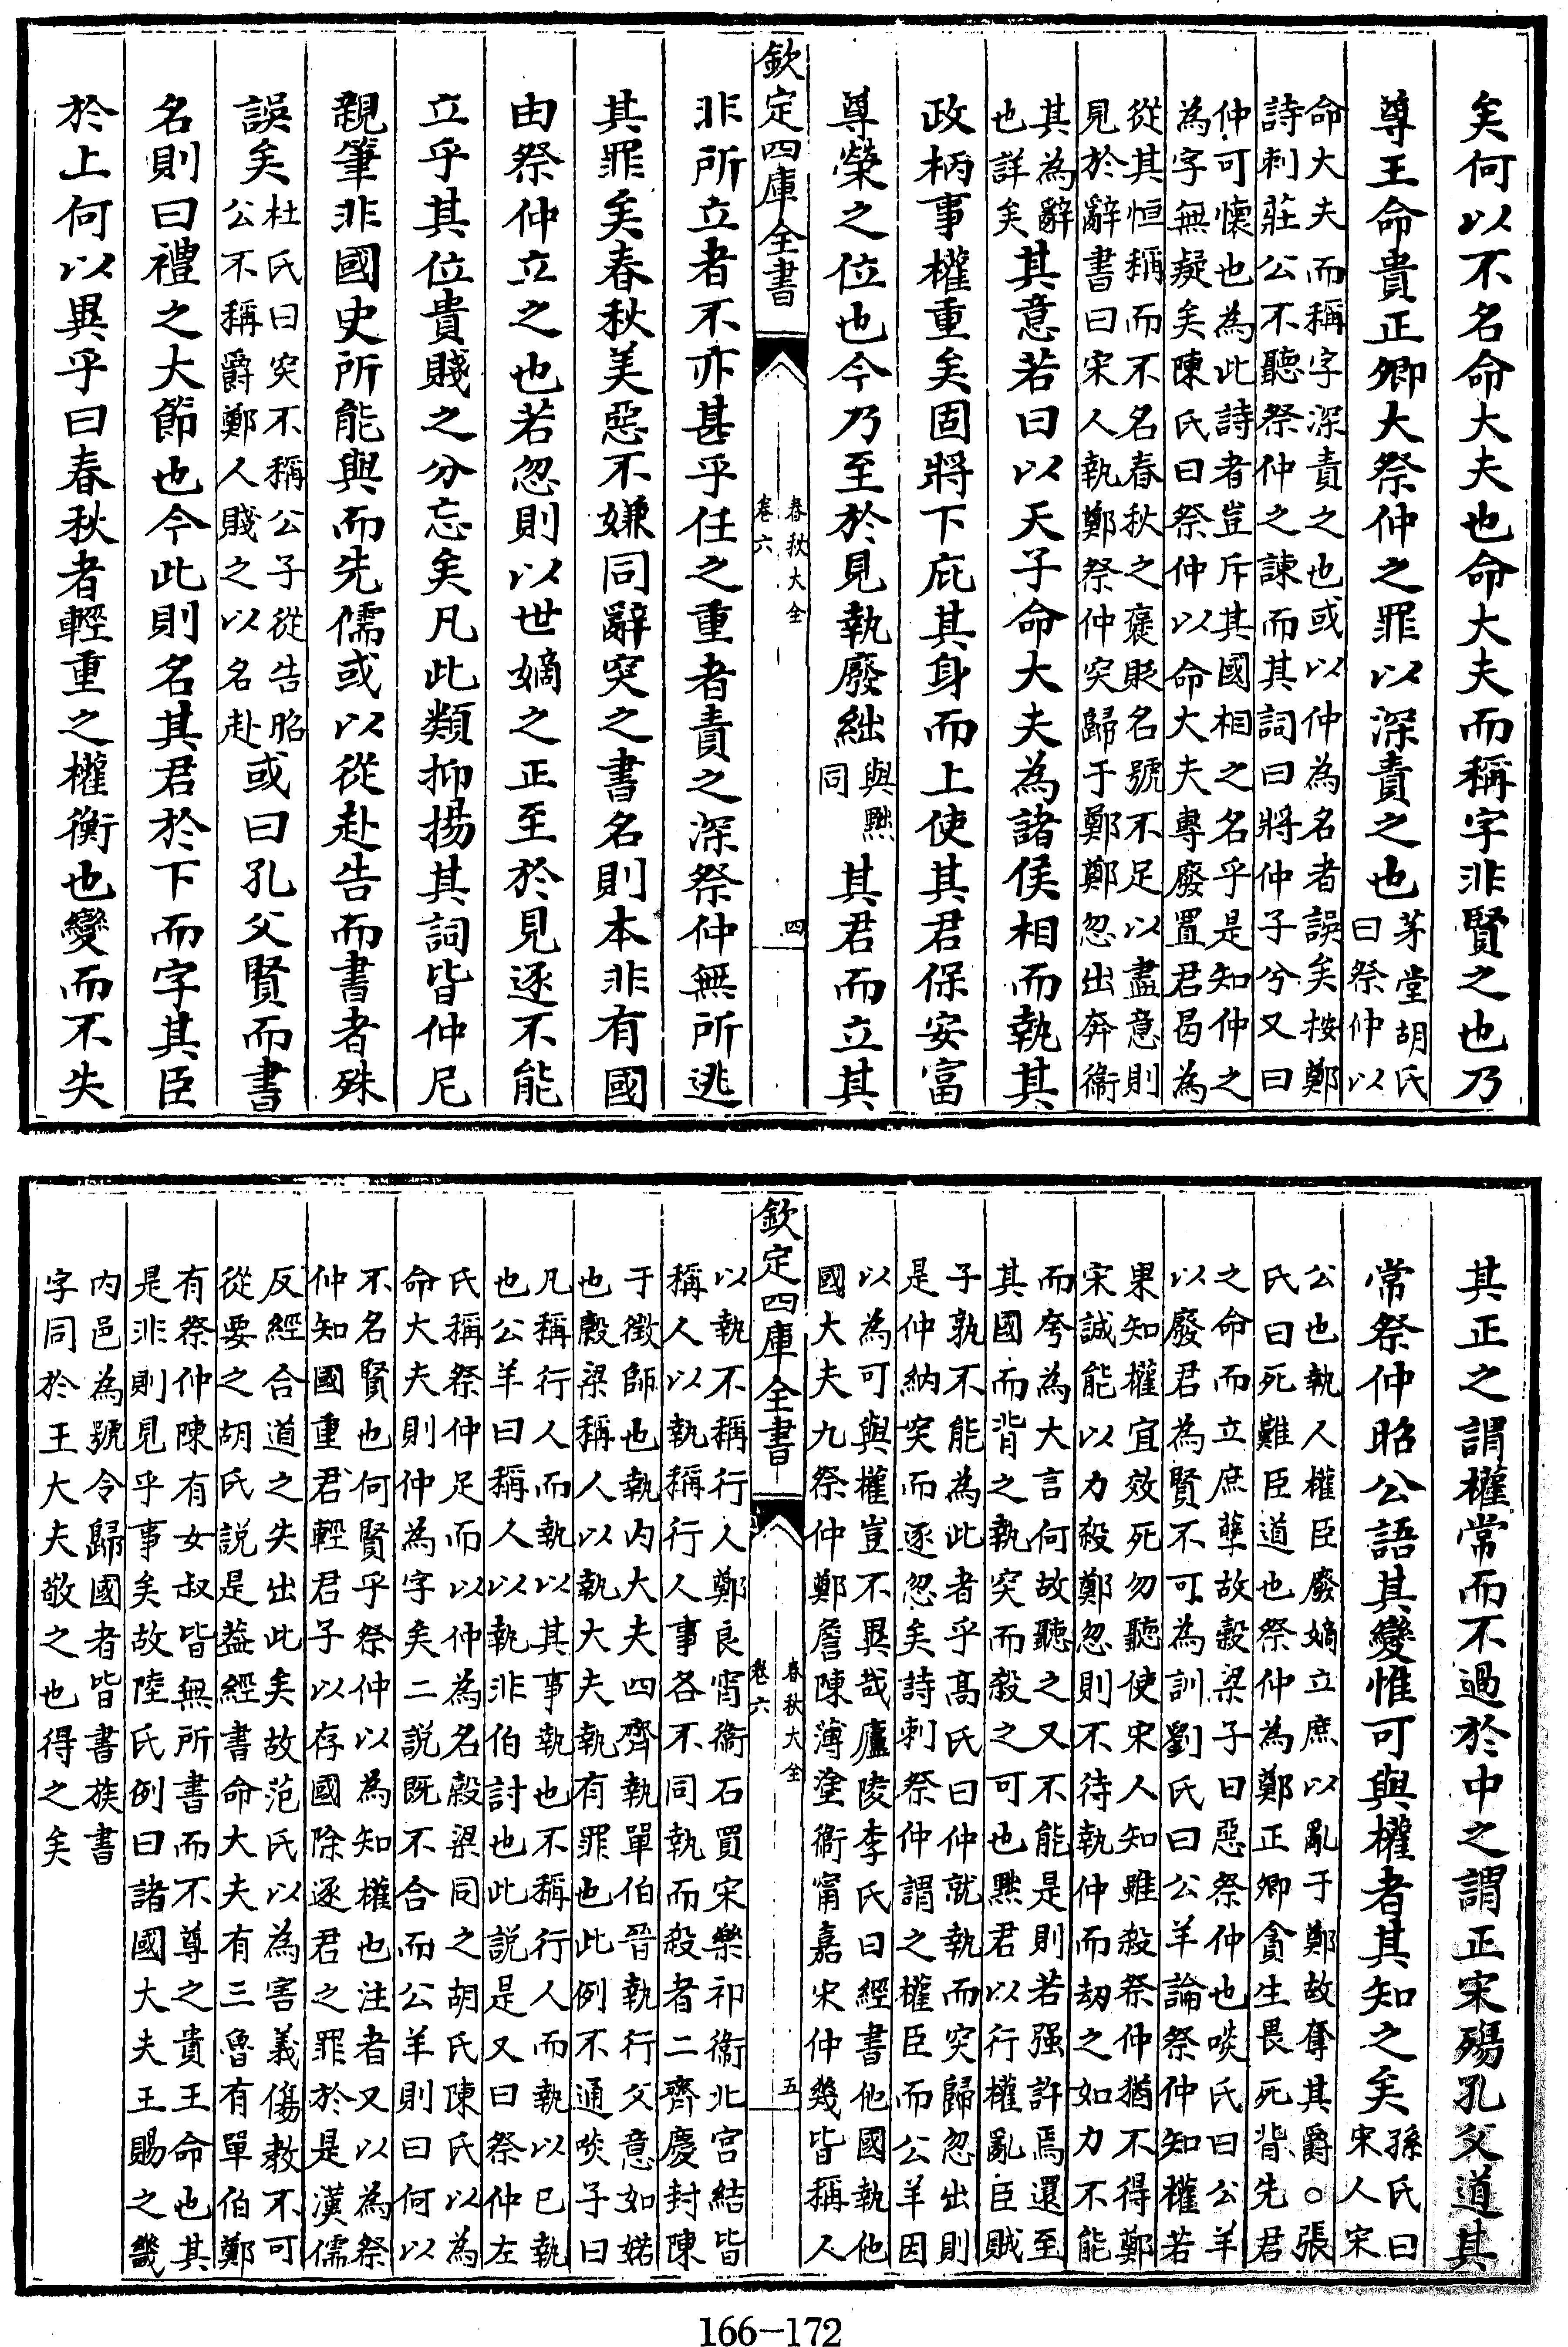 矣何以不名命大夫也命大夫而稱字非賢之也乃
尊王命貴正卿大祭仲之罪以深責之也茅堂胡氏
曰祭仲以
命大夫而稱字深責之也或以仲為名者誤矣按鄭
詩刺莊公不聽祭仲之諫而其詞曰將仲子兮又曰
仲可懷也為此詩者豈斥其國相之名乎是知仲之
為字無疑矣陳氏曰祭仲以命大夫專廢置君曷為
從其恒稱而不名春秋之褒貶名號不足以盡意則
見於辭書曰宋人執鄭祭仲突歸于鄭鄭忽出奔衞
其為辭
也詳矣其意若曰以天子命大夫為諸侯相而執其
政柄事權重矣固將下庇其身而上使其君保安富
尊榮之位也今乃至於見執廢絀與黜
同其君而立其
欽定四庫全書
春秋大全
卷六
四
非所立者不亦甚乎任之重者責之深祭仲無所逃
其罪矣春秋美惡不嫌同辭突之書名則本非有國
由祭仲立之也若忽則以世嫡之正至於見逐不能
立乎其位貴賤之分忘矣凡此類抑揚其詞皆仲尼
親筆非國史所能與而先儒或以從赴告而書者殊
誤矣杜氏曰突不稱公子從告昭
公不稱爵鄭人賤之以名赴或曰孔父賢而書
名則曰禮之大節也今此則名其君於下而字其臣
於上何以異乎曰春秋者輕重之權衡也變而不失
其正之謂權常而不過於中之謂正宋殤孔父道其
常祭仲昭公語其變惟可與權者其知之矣孫氏曰
宋人宋
公也執人權臣廢嫡立庶以亂于鄭故奪其爵○張
氏曰死難臣道也祭仲為鄭正卿貪生畏死背先君
之命而立庶孽故穀梁子曰惡祭仲也啖氏曰公羊
以廢君為賢不可為訓劉氏曰公羊論祭仲知權若
果知權宜效死勿聽使宋人知雖殺祭仲猶不得鄭
宋誠能以力殺鄭忽則不待執仲而刼之如力不能
而夸為大言何故聽之又不能是則若强許焉還至
其國而背之執突而殺之可也黜君以行權亂臣賊
子孰不能為此者乎髙氏曰仲就執而突歸忽出則
是仲納突而逐忽矣詩刺祭仲謂之權臣而公羊因
以為可與權豈不異哉廬陵李氏曰經書他國執他
國大夫九祭仲鄭詹陳薄塗衞甯嘉宋仲幾皆稱人
欽定四庫全書
春秋大全
卷六
五
以執不稱行人鄭良霄衞石買宋樂祁衞北宫結皆
稱人以執稱行人事各不同執而殺者二齊慶封陳
于徵師也執内大夫四齊執單伯晉執行父意如婼
也穀梁稱人以執大夫執有罪也此例不通啖子曰
凡稱行人而執以其事執也不稱行人而執以已執
也公羊曰稱人以執非伯討也此説是又曰祭仲左
氏稱祭仲足而以仲為名穀梁同之胡氏陳氏以為
命大夫則仲為字矣二説既不合而公羊則曰何以
不名賢也何賢乎祭仲以為知權也注者又以為祭
仲知國重君輕君子以存國除逐君之罪於是漢儒
反經合道之失出此矣故范氏以為害義傷教不可
從要之胡氏説是葢經書命大夫有三魯有單伯鄭
有祭仲陳有女叔皆無所書而不尊之貴王命也其
是非則見乎事矣故陸氏例曰諸國大夫王賜之畿
内邑為號令歸國者皆書族書
字同於王大夫敬之也得之矣
166-172